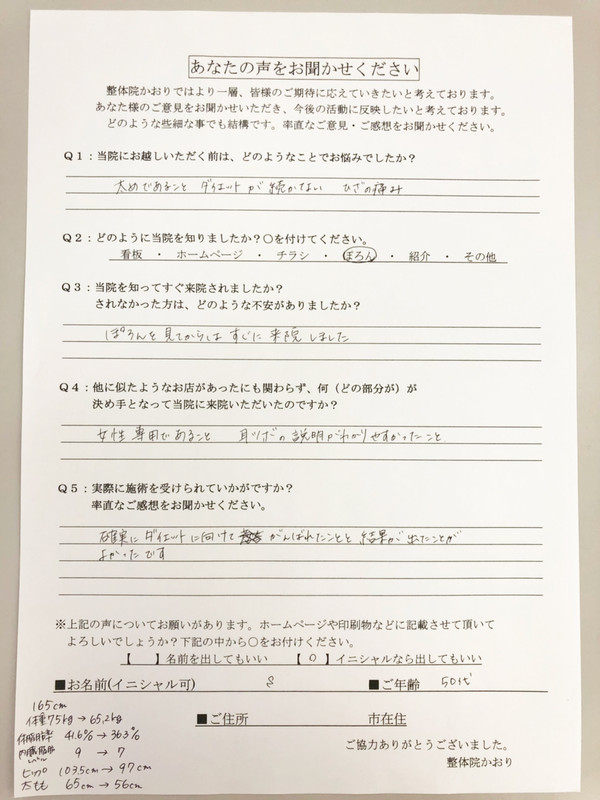 あなたの声をお聞かせください
整体院かおりではより一層、皆様のご期待に応えていきたいと考えております。
あなた様のご意見をお聞かせいただき、今後の活動に反映したいと考えております。
どのような些細な事でも結構です。率直なご意見・ご感想をお聞かせください。
Q1：当院にお越しいただく前は、どのようなことでお悩みでしたか？
太めであること ダイエットが続かない ひざの痛み
Q2：どのように当院を知りましたか？〇を付けてください。
看板 ・ ホームページ ・ チラシ ・ ぽろん ・ 紹介 ・ その他
Q3：当院を知ってすぐ来院されましたか？
されなかった方は、どのような不安がありましたか？
ぽろんを見てからはすぐに来院しました
Q4：他に似たようなお店があったにも関わらず、何（どの部分が）が
決め手となって当院に来院いただいたのですか？
女性専用であること 耳ツボの説明がわかりやすかったこと
Q5：実際に施術を受けられていかがですか？
率直なご感想をお聞かせください。
確実にダイエットに向けてがんばれたことと結果が出たことが
よかったです
※上記の声についてお願いがあります。ホームページや印刷物などに記載させて頂いて
よろしいでしょうか？下記の中から〇をお付けください。
【 】名前を出してもいい 【 〇 】イニシャルなら出してもいい
■お名前(イニシャル可) S ■ご年齢 50代
■ご住所 市在住
ご協力ありがとうございました。
整体院かおり
165cm
体重75kg→65.2kg
体脂肪率 41.6%→36.3%
内臓脂肪レベル 9→7
ヒップ 103.5cm→97cm
太もも 65cm→56cm